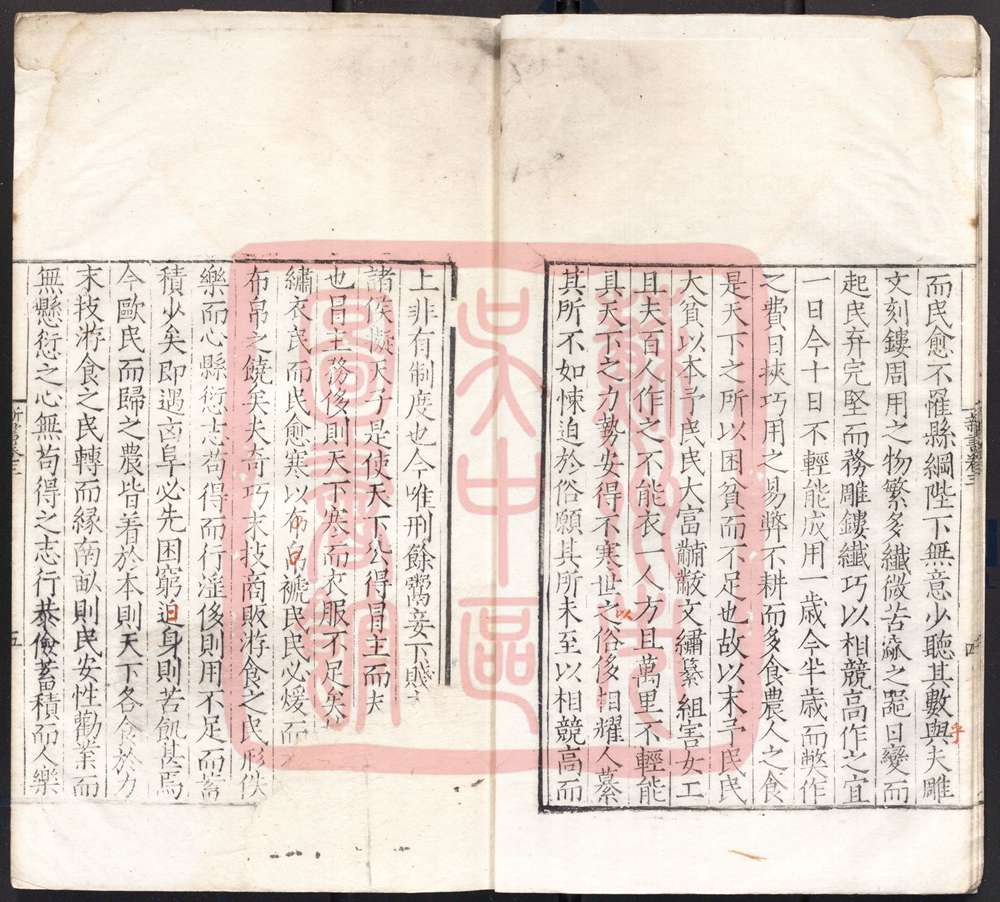 而民愈不罹縣網陛下無意少聽其數與夫雕
乎
文刻鏤周用之物繁多纖微苦窳之噐日變而
起民弃完堅而務雕鏤纖巧以相競高作之宜
一日今十日不輕能成用一歲今半歲而獘作
之費日挾巧用之易弊不耕而多食農人之食
是天下之所以困貧而不足也故以末予民民
大貧以本予民民大富黼黻文繡纂組害女工
且夫百人作之不能衣一人方且萬里不輕能
具天下之力勢安得不寒世之俗侈相耀人慕
以
其所不如悚迫於俗願其所未至以相競高而
新書卷三
上非有制度也今唯刑餘鬻妾下賤
諸侯擬天子是使天下公得冒主而夫
也曰主務侈則天下寒而衣服不足矣
繡衣民而民愈寒以布帛褫民民必煖而
布帛之饒矣夫奇巧末技商販游食之民形佚
樂而心縣愆志苟得而行淫侈則用不足而蓄
積少矣即遇凶旱必先困窮迫身則苦飢甚焉
今歐民而歸之農皆着於本則天下各食於力
末技游食之民轉而緣南畝則民安性勸業而
無懸愆之心無苟得之志行恭儉蓄積而人樂
新書卷三
五
蘇州市
吳中區
圖書館